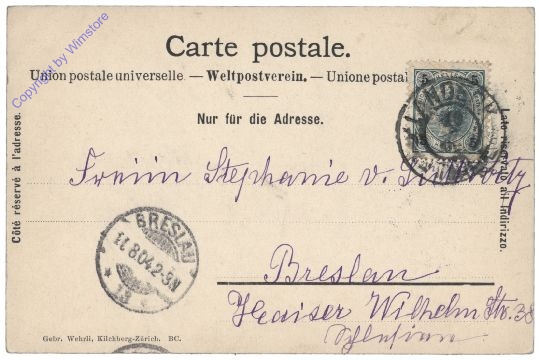 Copyright by Wimstore
Carte postale.
Union postale universelle. — Weltpostverein. — Unione postal
Nur für die Adresse.
Côté réservé à l'adresse.
Lato riservato all'indirizzo.
Freiin Stephanie v.
BRESLAU
11.8.04.2-3N
* 13 *
Breslau
Kaiser Wilhelm Str. 38
Schlesien
Gebr. Wehrli, Kilchberg-Zürich. BC.